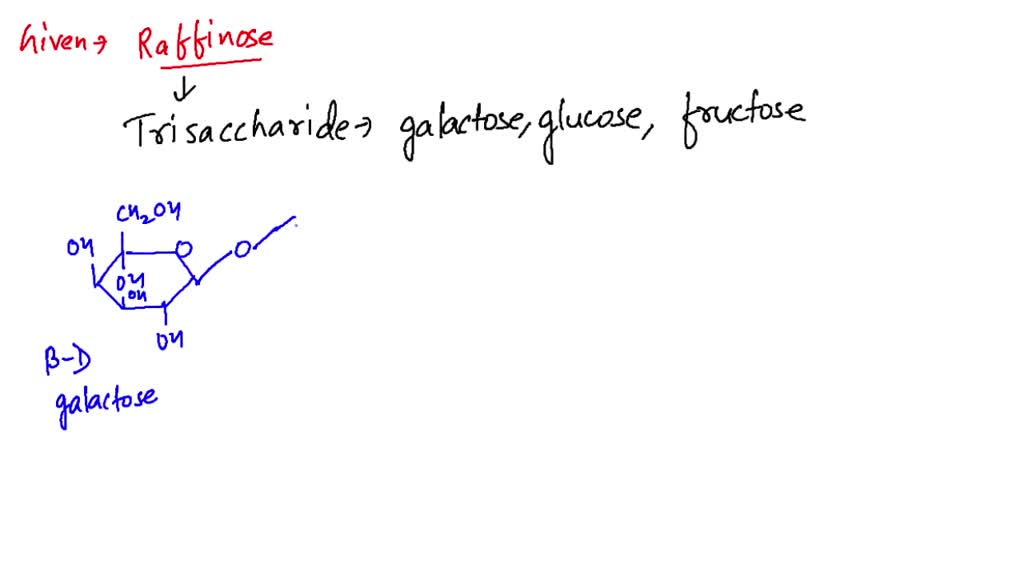 Given → Raffinose
↓
Trisaccharide → galactose, glucose, fructose
CH2OH
OH O O
OH
OH
OH
β-D
galactose